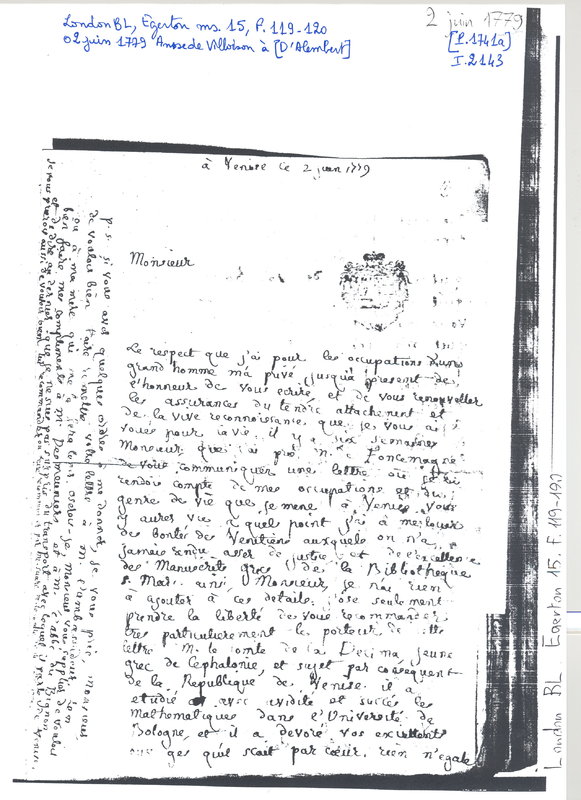 London BL, Egerton ms. 15, f. 119-120
02 juin 1779 Ansse de Villoison à [D'Alembert]
2 juin 1779
[P. 1741a]
I. 2143
à Venise ce 2 juin 1779
Monsieur
Le respect que j'ai pour les occupations d'un
grand homme m'a privé jusqu'à present de
l'honneur de vous ecrire et de vous renouveller
les assurances du tendre attachement et
de la vive reconnoissance que je vous ai
voués pour la vie. il y a six semaines
Monsieur, que j'ai prié m. Foncemagne
de vous communiquer une lettre où je lui
rendois compte de mes occupations et du
genre de vie que je mene à Venise. Vous
y aurez vu à quel point j'ai à me louer
des bontés des Venitiens auxquels on n'a
jamais rendu assez de justice et de l'excellence
des Manuscrits grecs de la Bibliothèque
S. Marc. ainsi Monsieur, je n'ai rien
à ajouter à ces details. j'ose seulement
prendre la liberté de vous recommander
très particulierement le porteur de cette
lettre M. le comte de la Decima jeune
grec de Cephalonie, et sujet par consequent
de la Republique de Venise. il a
etudié avec avidité et succès les
mathematiques dans l'Université de
Bologne, et il a devoré vos excellents
ouvrages qu'il scait par coeur. rien n'egale
p.s. si vous avez quelques ordres à me donner, je vous prie monsieur
de vouloir bien faire remettre votre lettre à m. l'ambassadeur
ou à ma mere qui me la fera tenir. oserois-je, monsieur vous supplier de vouloir
bien faire mes compliments à m. Desmeuniers et à m. l'abbé du Bignon
et de dire au dernier que je ne suis pas surpris du transport avec lequel il
je vous prierois aussi de vouloir
London BL. Egerton 15. f. 119-120